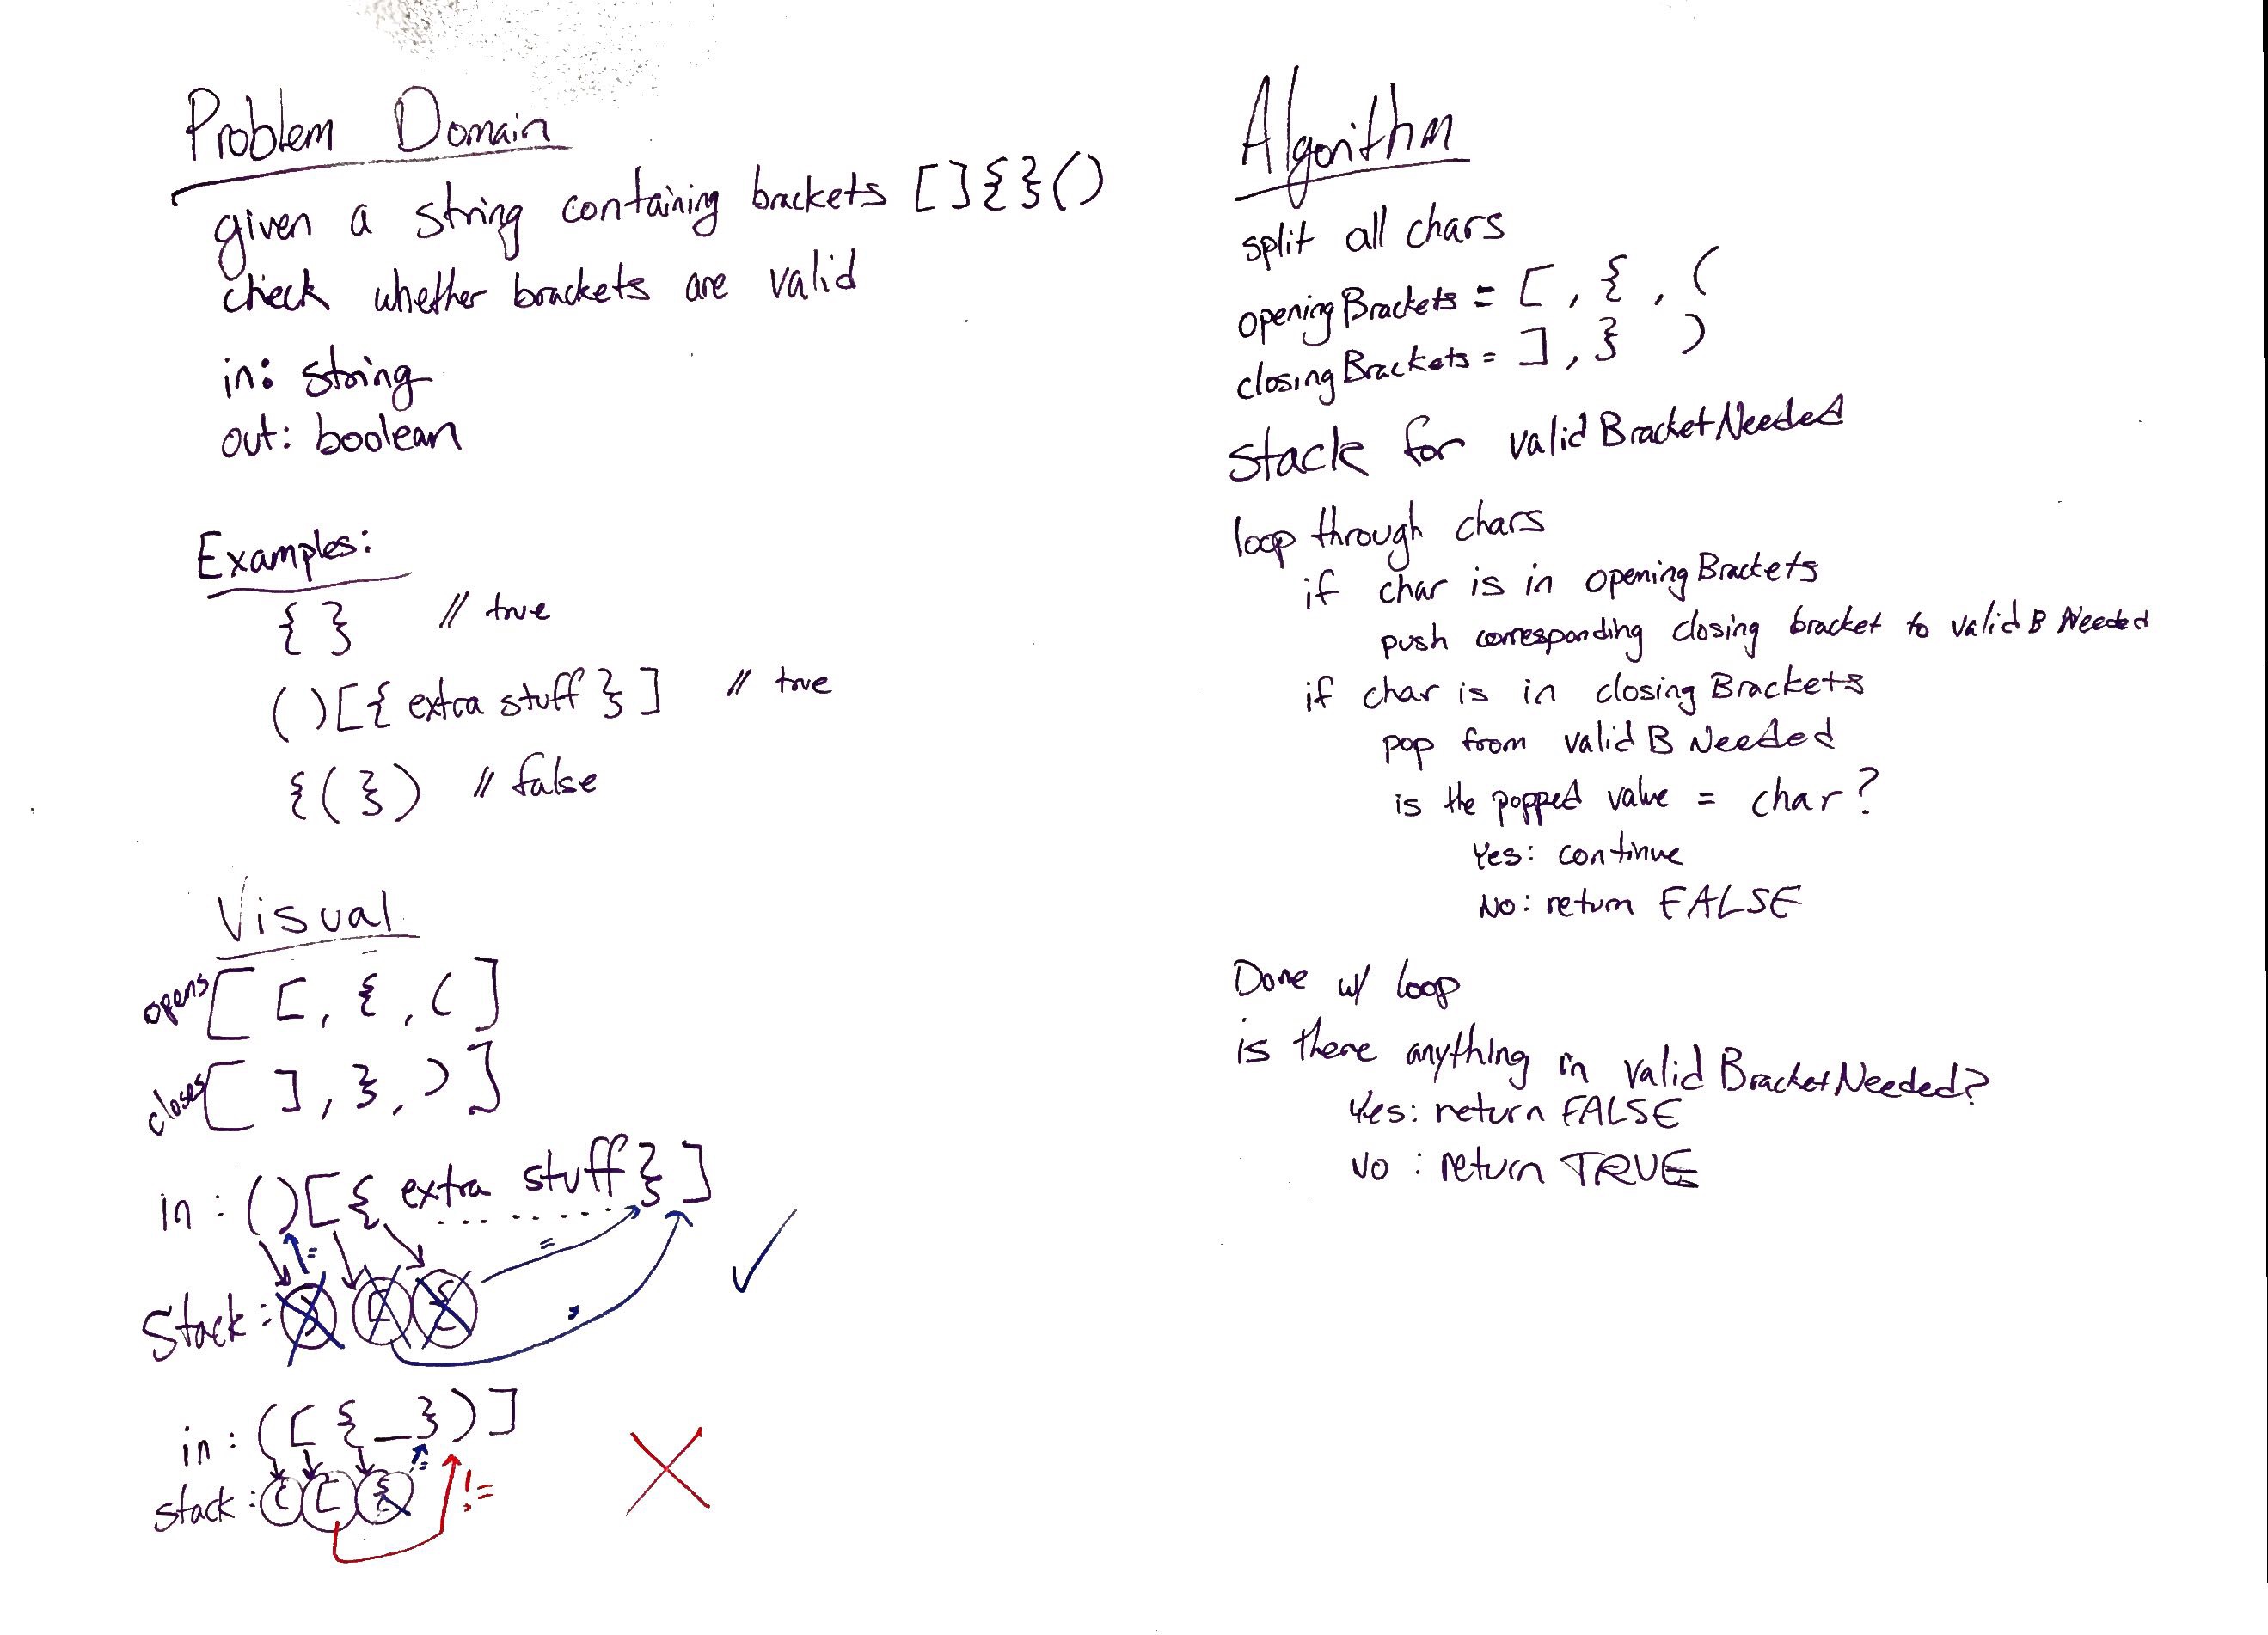 Problem Domain
given a string containing brackets []{}()
check whether brackets are valid
in: string
out: boolean
Examples:
{ } // true
()[{ extra stuff }] // true
{(}) // false
Visual
opens [ [, {, ( ]
closes [ ], }, ) ]
in: ()[{ extra stuff }]
=
=
Stack:
in: ([{_})]
=
stack: ( [ {
!=
Algorithm
split all chars
openingBrackets = [ , { , (
closingBrackets = ] , } )
stack for validBracketNeeded
loop through chars
if char is in openingBrackets
push corresponding closing bracket to validBNeeded
if char is in closingBrackets
pop from validBNeeded
is the popped value = char?
Yes: continue
No: return FALSE
Done w/ loop
is there anything in validBracketNeeded?
Yes: return FALSE
No: return TRUE